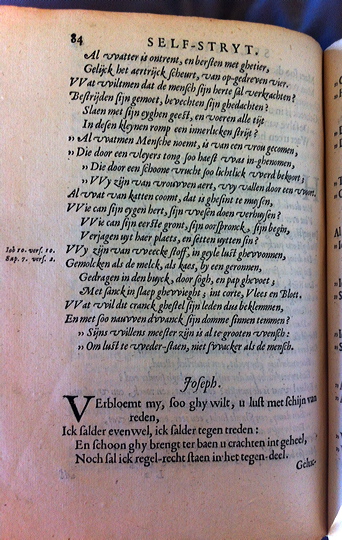 84
SELF-STRYT.
Al watter is ontrent, en bersten met ghetier,
Gelijck het aertrijck scheurt, van op-gedreven vier.
VVat wiltmen dat de mensch sijn herte sal verkrachten?
Bestrijden sijn gemoet, bevechten sijn ghedachten?
Slaen met sijn eyghen geest, en voeren alle tijt
In desen kleynen romp een innerlicken strijt?
„ Al watmen Mensche noemt, is van een vrou gecomen,
„ Die door een vleyers tong soo haest was in-ghenomen,
„ Die door een schoone vrucht soo lichtlick werd bekoort;
„ VVy zijn van vrouwen aert, wy vallen door een woort.
Al wat van katten coomt, dat is ghesint te muysen,
VVie can sijn eygen hert, sijn wesen doen verhuysen?
VVie can sijn eerste gront, sijn oorspronck, sijn begin,
Verjagen uyt haer plaets, en setten uytten sin?
Iob 10. vers. 10.
Sap. 7. vers. 2.
VVy zijn van weecke stoff, in geyle lust ghewonnen,
Gemolcken als de melck, als kaes, by een geronnen,
Gedragen in den buyck, door sogh, en pap ghevoet;
Met sanck in slaep ghewieght; int corte, Vlees en Bloet.
VVat wil dit cranck ghestel sijn leden dus beklemmen,
En met soo nauwen dwanck sijn domme sinnen temmen?
„ Sijns willens meester zijn is al te grooten wensch:
„ Om lust te weder-staen, niet swacker als de mensch.
Joseph.
VErbloemt my, soo ghy wilt, u lust met schijn van
reden,
Ick salder evenwel, ick salder tegen treden:
En schoon ghy brengt ter baen u crachten int geheel,
Noch sal ick regel-recht staen in het tegen-deel.
Geluc-